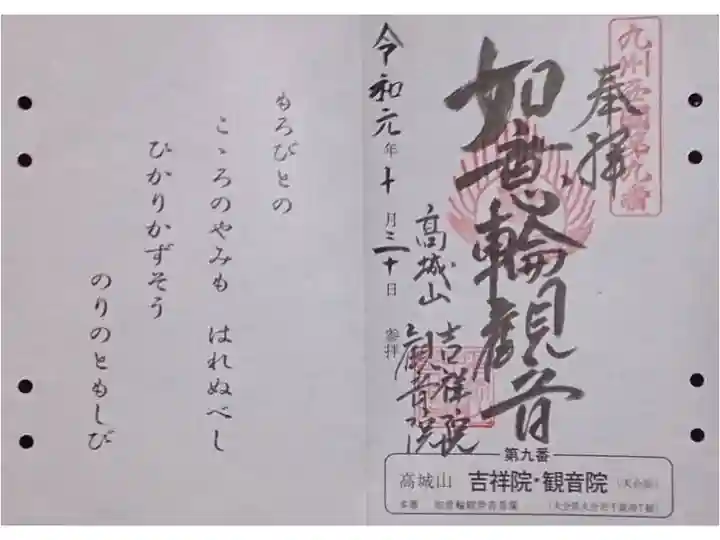 九州西国第九番
奉拝
如意輪観音
高城山 吉祥院
観音院
令和元年十月二十日 参拝
第九番
高城山 吉祥院・観音院 (天台宗)
本尊 如意輪観世音菩薩
もろびとの
こゝろのやみも はれぬべし
ひかりかずそう
のりのともしび